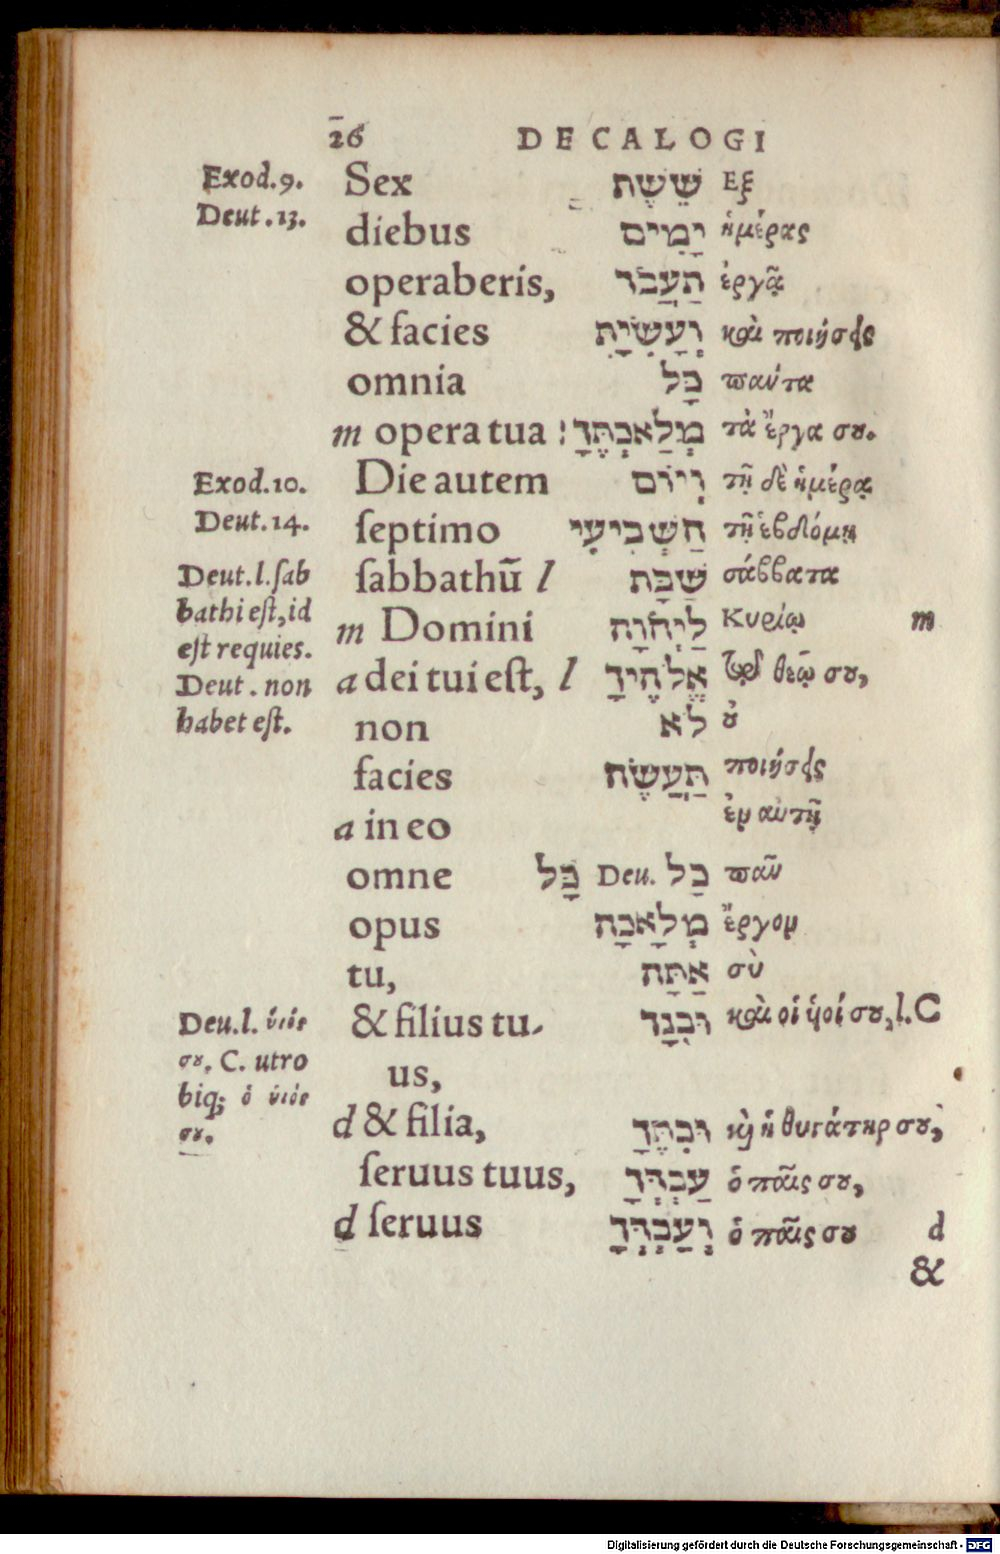 26 DECALOGI
Exod.9. Sex שֵׁשֶׁת Εξ
Deut.13. diebus יָמִים ἡμέρας
operaberis, תַּעֲבֹד ἐργᾷ
& facies וְעָשִׂיתָ καὶ ποιήσεις
omnia כָּל πάντα
m opera tua : מְלַאכְתֶּךָ τὰ ἔργα σου.
Exod.10. Die autem וְיוֹם τῇ δὲ ἡμέρᾳ
Deut.14. ſeptimo הַשְּׁבִיעִי τῇ ἑβδόμῃ
Deut.l.ſab ſabbathū l שַׁבָּת σάββατα
bathi eſt, id m Domini לַיְהֹוָה Κυρίῳ m
eſt requies.
Deut. non a dei tui eſt, l אֱלֹהֶיךָ τῷ θεῷ σου,
habet eſt. non לֹא οὐ
facies תַּעֲשֶׂה ποιήσεις
a in eo ἐν αὐτῇ
omne כָּל Deu. כַל πᾶν
opus מְלָאכָה ἔργον
tu, אַתָּה σὺ
Deu.l. ὑιός & filius tu- וּבִנְךָ καὶ οἱ ὑοί σου, l. C
σου. C. utro us,
biq; ὁ ὑιός
σου. d & filia, וּבִתֶּךָ καὶ ἡ θυγάτηρ σου,
ſeruus tuus, עַבְדְּךָ ὁ παῖς σου,
d ſeruus וְעַבְדְּךָ ὁ παῖς σου d
&
Digitalisierung gefördert durch die Deutsche Forschungsgemeinschaft - DFG